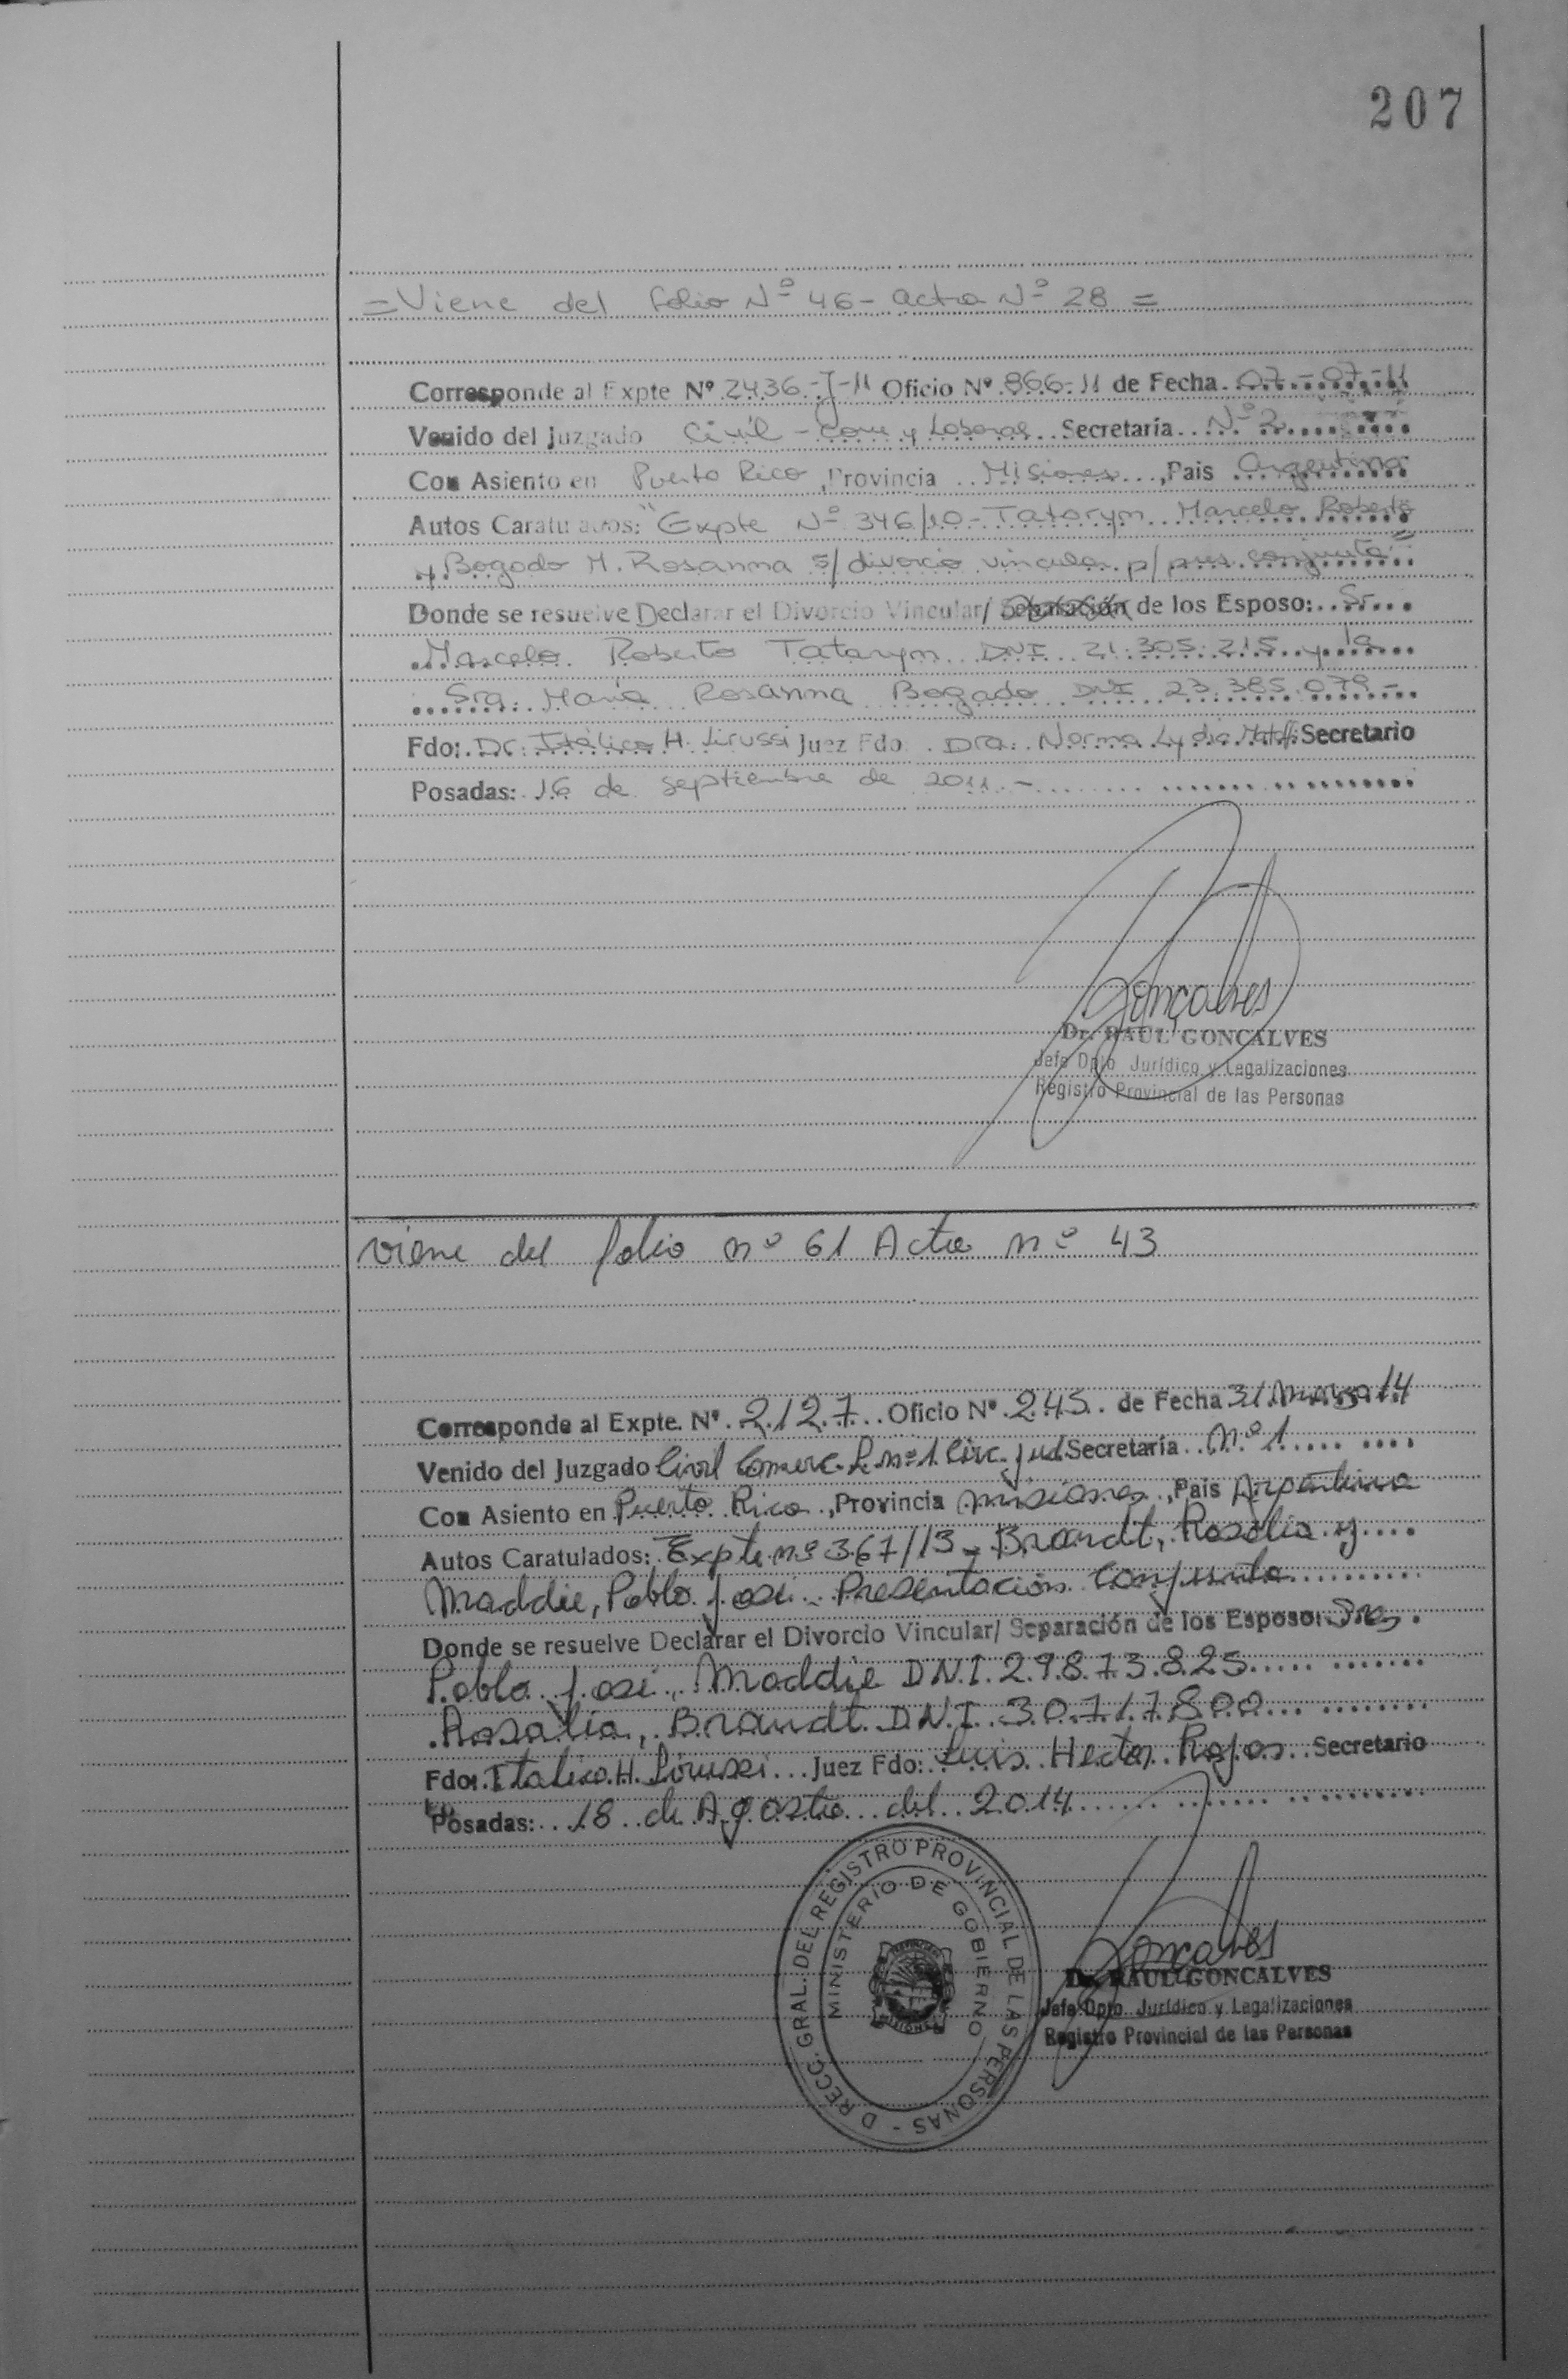 207
= Viene del folio Nº 46 - acta Nº 28 =
Corresponde al Expte Nº 2436-J-11 Oficio Nº 866-11 de Fecha 07-07-11
Venido del Juzgado Civil - Com y Laboral Secretaría Nº 2
Con Asiento en Puerto Rico, Provincia Misiones, Pais Argentina
Autos Caratulados: "Expte Nº 346/10 - Tatarym Marcelo Roberto
y Bogado M. Rosanna s/ divorcio vincular p/ pres. conjunta"
Donde se resuelve Declarar el Divorcio Vincular/ Separación de los Esposo: Sr.
Marcelo Roberto Tatarym DNI 21.305.215 y la
Sra. María Rosanna Bogado DNI 23.385.079 -
Fdo: Dr. Itálico H. Lirussi Juez Fdo: Dra. Norma Lydia Secretario
Posadas: 16 de septiembre de 2011 -
Gonçalves
Dr. RAUL GONCALVES
Jefe Dpto Jurídico y Legalizaciones
Registro Provincial de las Personas
viene del folio nº 61 Acta nº 43
Corresponde al Expte. Nº 2127 Oficio Nº 245 de Fecha 31 marzo 14
Venido del Juzgado Civil Comerc. L nº 1 Circ. Jud Secretaría Nº 1
Con Asiento en Puerto Rico, Provincia misiones, Pais Argentina
Autos Caratulados: Expte nº 367/13 - Brandt, Rosalia y
Maddie, Pablo José - Presentación Conjunta
Donde se resuelve Declarar el Divorcio Vincular/ Separación de los Esposo: Sres.
Pablo José, Maddie D.N.I. 29.873.825
Rosalia, Brandt D.N.I. 30.717.800
Fdo: Italico H. Lirussi Juez Fdo: Luis Hector Rojas Secretario
Posadas: 18 de Agosto del 2014
DRECC. GRAL. DEL REGISTRO PROVINCIAL DE LAS PERSONAS -
MINISTERIO DE GOBIERNO
Gonçalves
Dr. RAUL GONCALVES
Jefe Dpto Jurídico y Legalizaciones
Registro Provincial de las Personas